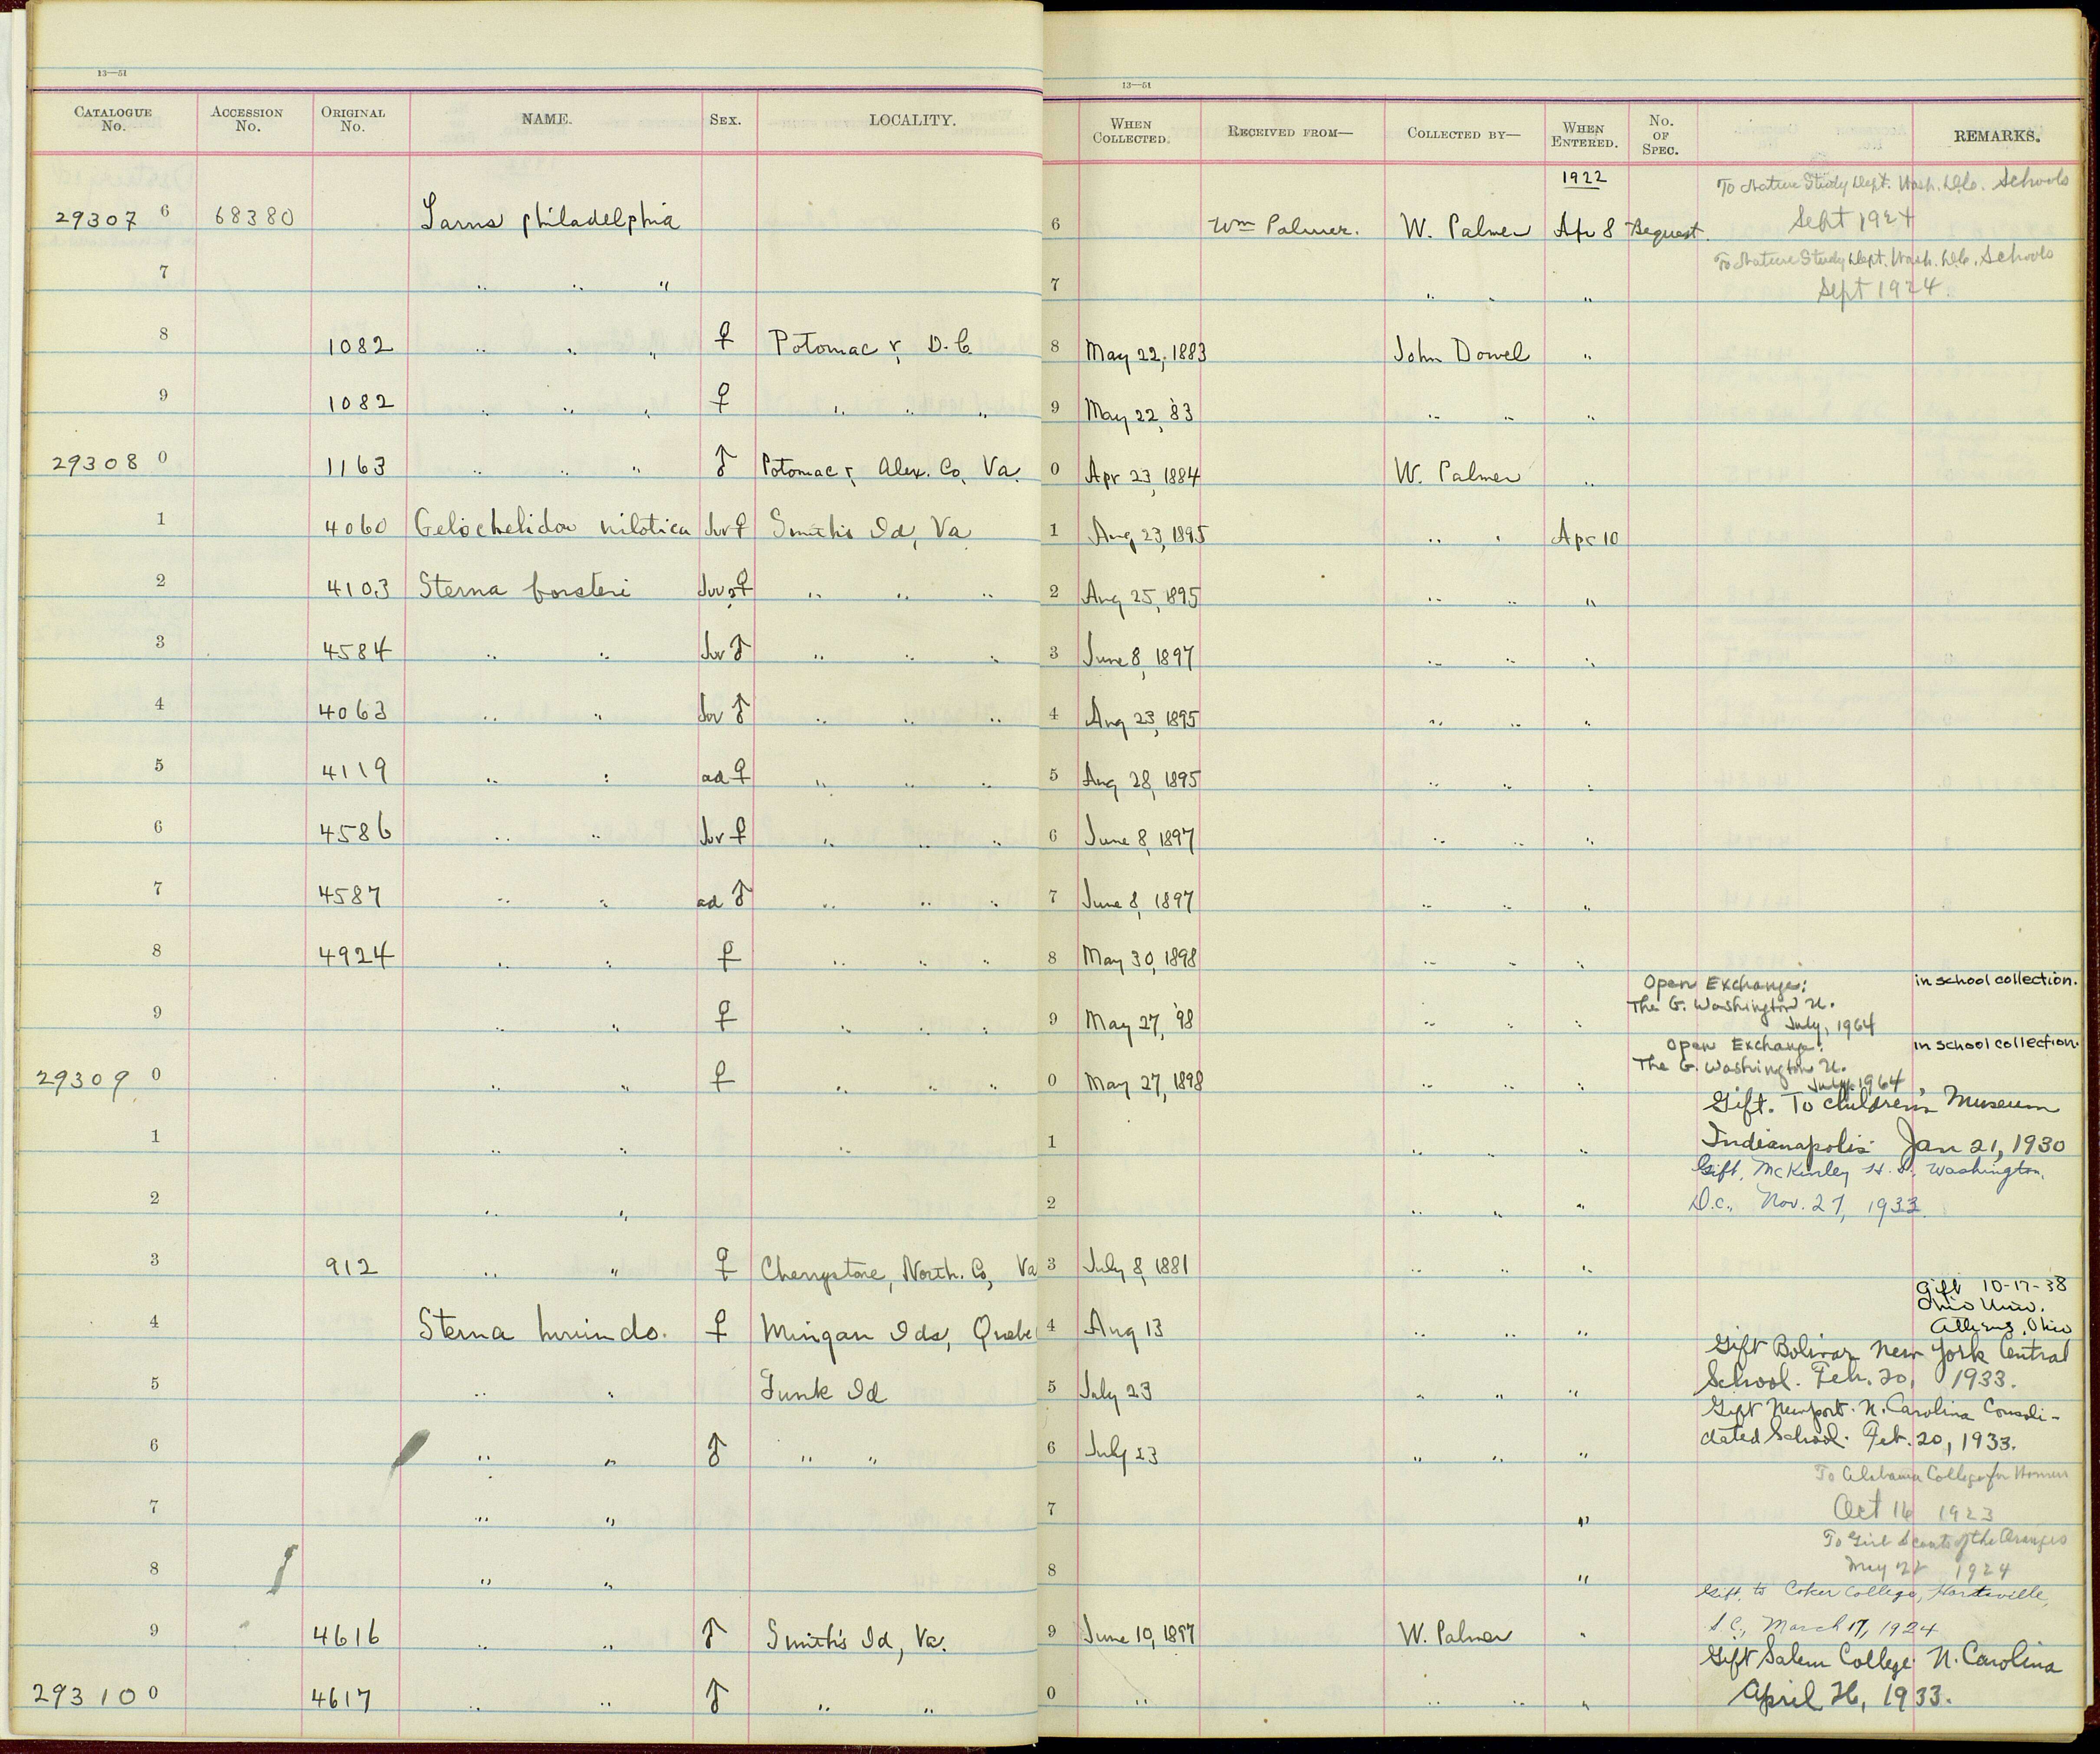 13—51
CATALOGUE No. ACCESSION No. ORIGINAL No. NAME. SEX. LOCALITY.
29307 6 68380 Larus philadelphia
7 " " "
8 1082 " " " ♀ Potomac r, D.C.
9 1082 " " " ♀ " " "
29308 0 1163 " " " ♂ Potomac r, Alex. Co, Va.
1 4060 Gelochelidon nilotica Juv ♀ Smith's Id, Va
2 4103 Sterna forsteri Juv ?♀ " " "
3 4584 " " Juv ♂ " " "
4 4063 " " Juv ♂ " " "
5 4119 " " ad ♀ " " "
6 4586 " " Juv ♀ " " "
7 4587 " " ad ♂ " " "
8 4924 " " ♀ " " "
9 " " ♀ " " "
29309 0 " " ♀ " " "
1 " " "
2 " "
3 912 " " ♀ Cherrystone, North. Co, Va
4 Sterna hirundo. ♀ Mingan Ids, Quebe
5 " " Funk Id
6 " " ♂ " "
7 " "
8 " "
9 4616 " " ♂ Smith's Id, Va.
29310 0 4617 " " ♂ " "
13—51
WHEN COLLECTED. RECEIVED FROM— COLLECTED BY— WHEN ENTERED. No. OF SPEC. REMARKS.
1922 To Nature Study Dept. Wash. D.C. Schools
6 Wm Palmer. W. Palmer Apr 8 Bequest. Sept 1924
To Nature Study Dept. Wash. D.C. Schools
7 " " " Sept 1924.
8 May 22, 1883 John Dowel "
9 May 22, '83 " " "
0 Apr 23, 1884 W. Palmer "
1 Aug 23, 1895 " " Apr 10
2 Aug 25, 1895 " " "
3 June 8, 1897 " " "
4 Aug 23, 1895 " " "
5 Aug 28, 1895 " " "
6 June 8, 1897 " " "
7 June 8, 1897 " " "
8 May 30, 1898 " " "
Open Exchange: in school collection.
The G. Washington U.
9 May 27, '98 " " " July, 1964
Open Exchange: in school collection.
The G. Washington U.
0 May 27, 1898 " " " July, 1964
Gift. To children's Museum
1 " " " Indianapolis Jan 21, 1930
Gift, McKinley H. S. Washington,
2 " " " D.C., Nov. 27, 1933.
3 July 8, 1881 " " "
Gift 10-17-38
Ohio Univ.
4 Aug 13 " " " Athens, Ohio
Gift Bolivar New York Central
5 July 23 " " " School. Feb. 20, 1933.
Gift Newport. N. Carolina Consoli-
6 July 23 " " " dated School. Feb. 20, 1933.
To Alabama College for Women
7 " Oct 16 1923
To Girl Scouts of the Oranges
8 " May 28 1924
Gift, to Coker College, Hartsville,
9 June 10, 1897 W. Palmer " S.C., March 17, 1924
Gift Salem College N. Carolina
0 " " " " April 26, 1933.